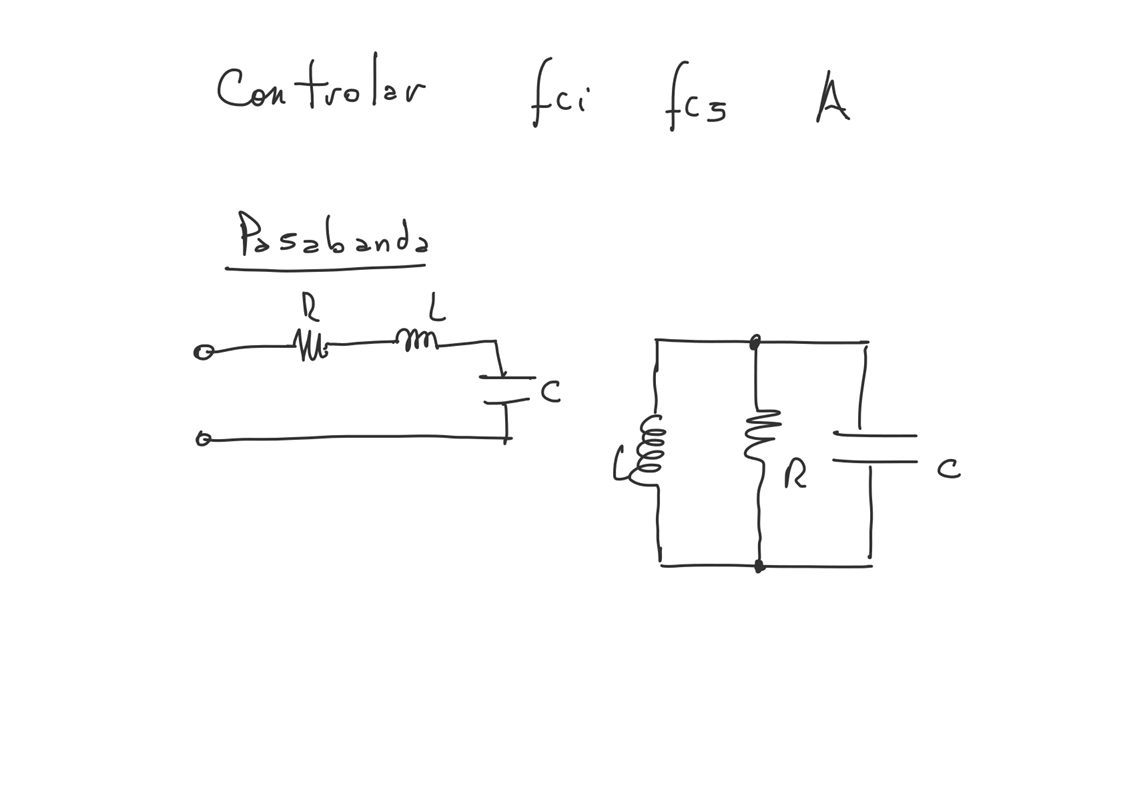 Controlar fci fcs A
Pasabanda
R L
C
L R C